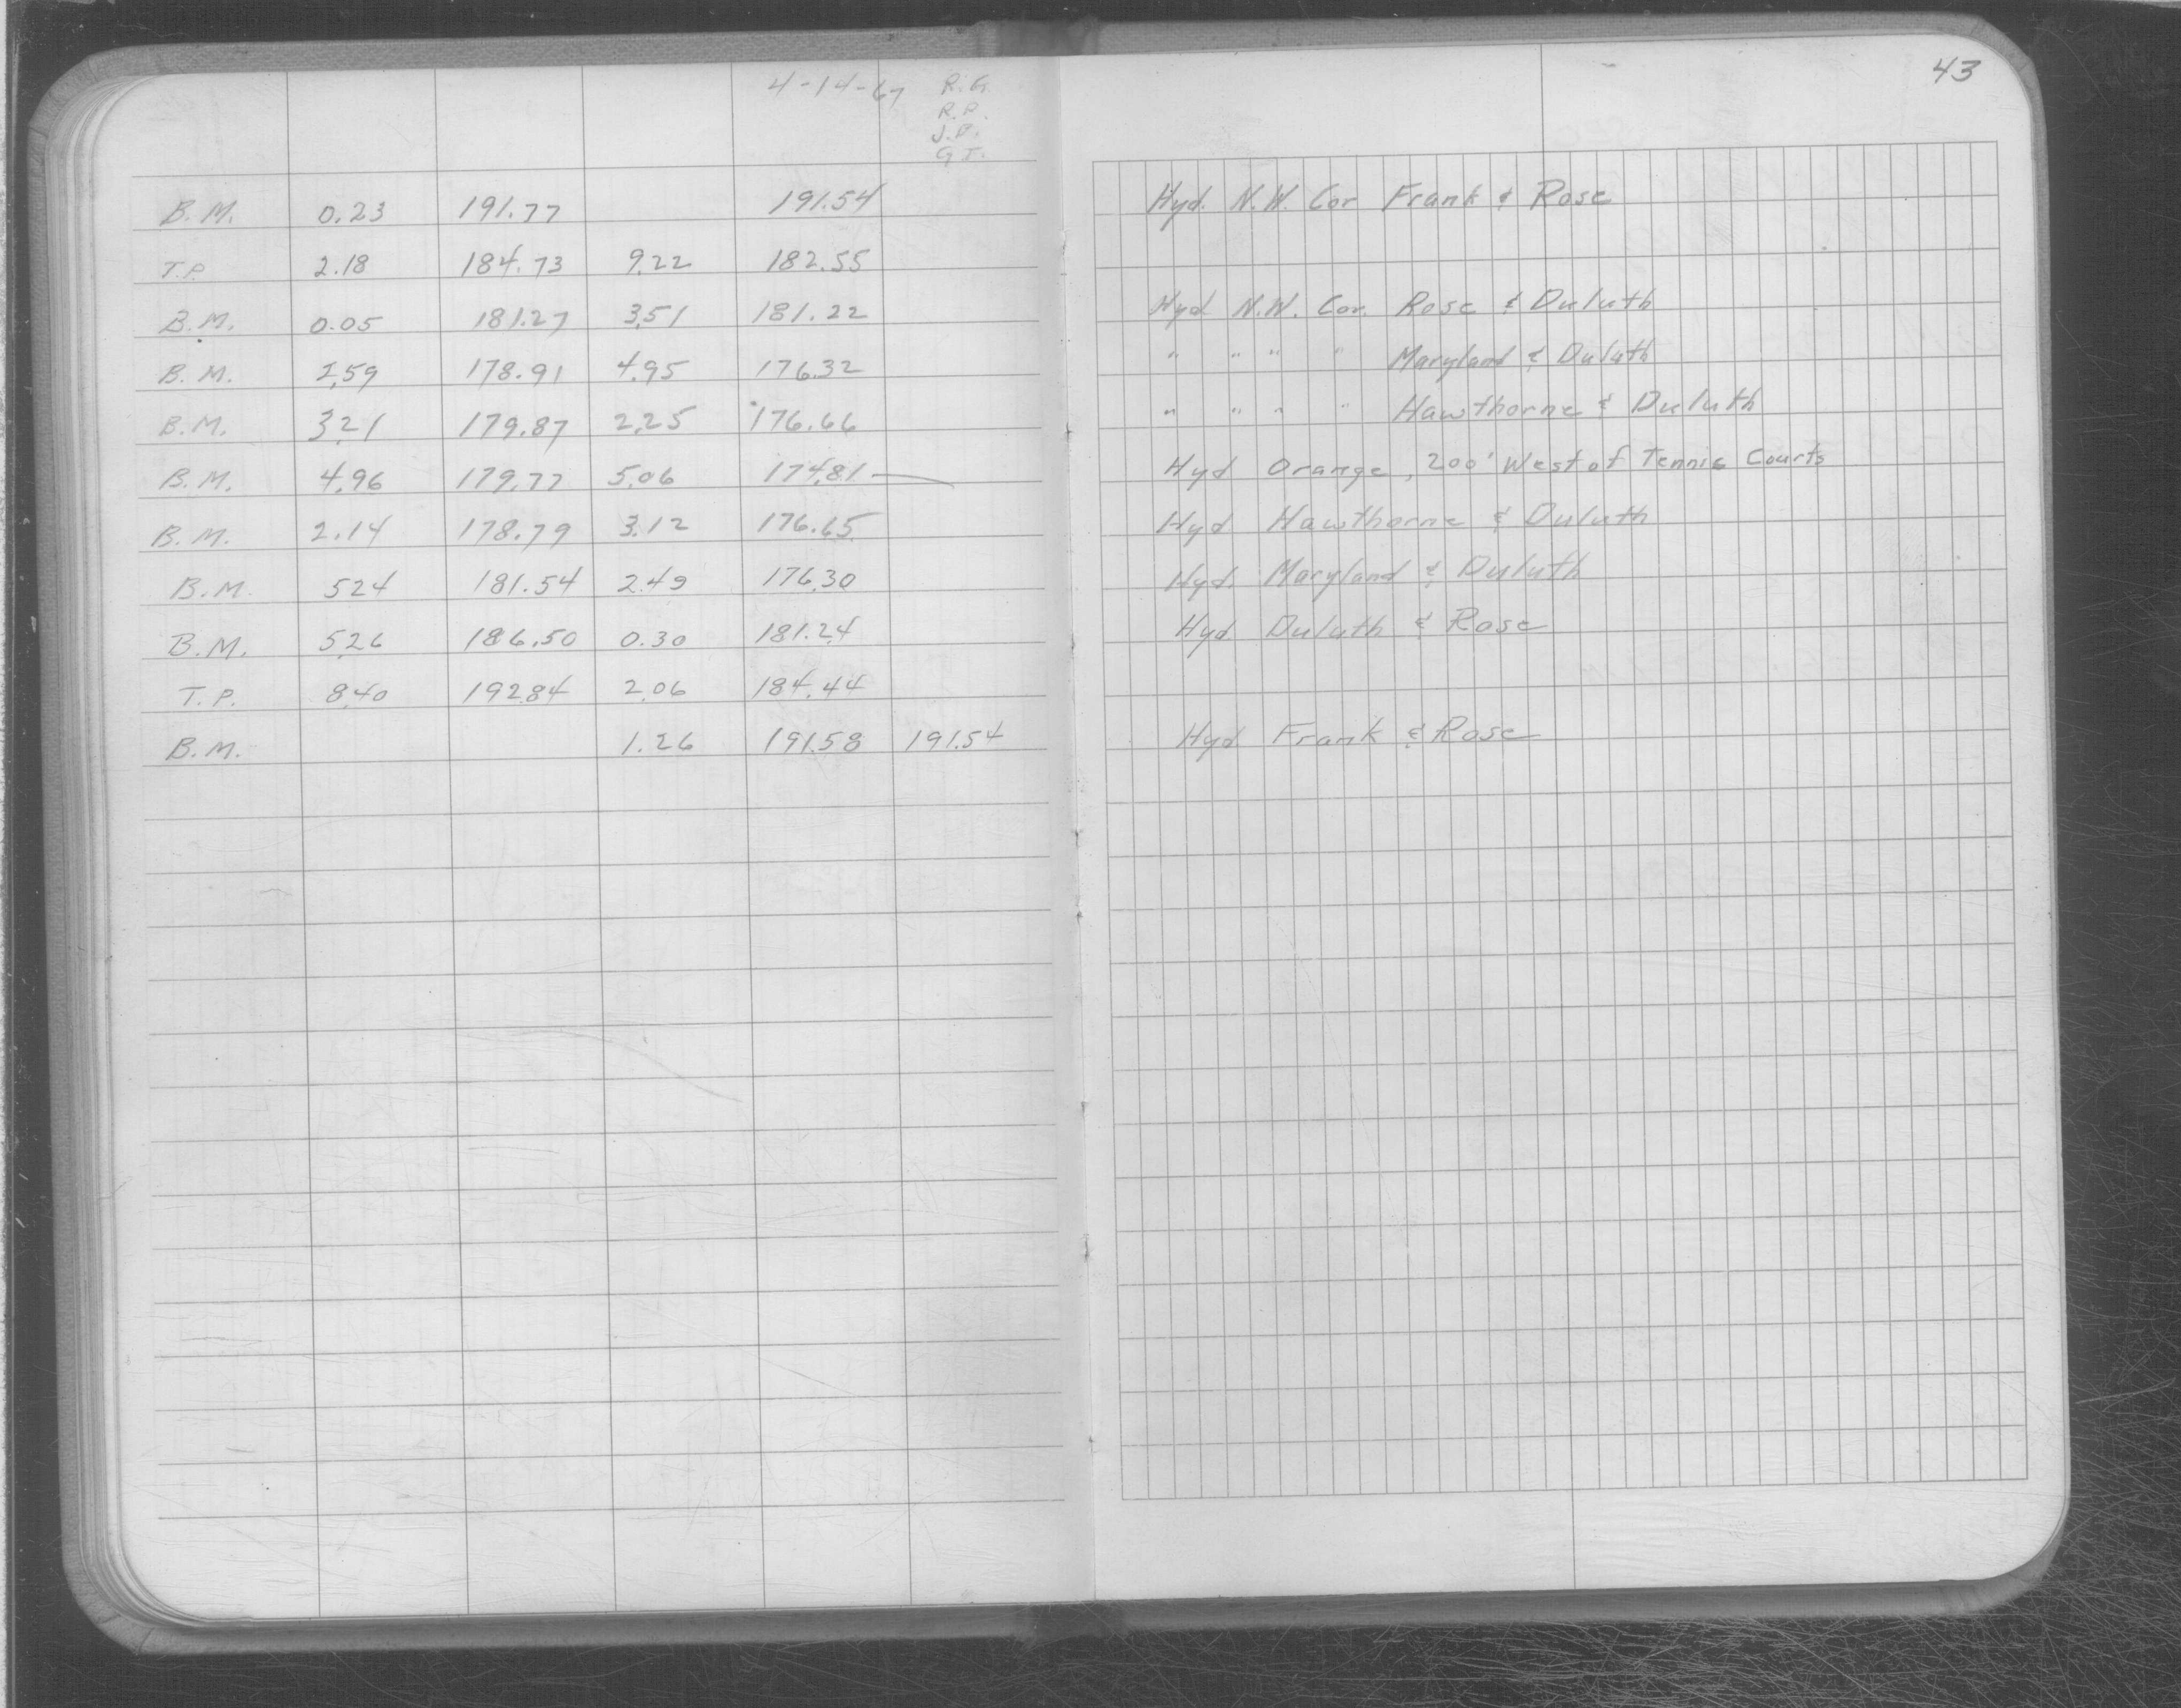 43
4-14-67 R.G.
R.P.
J.P.
G.J.
B.M. 0.23 191.77 191.54 Hyd. N.W. Cor Frank & Rose
T.P. 2.18 184.73 9.22 182.55
B.M. 0.05 181.27 3.51 181.22 Hyd. N.W. Cor. Rose & Duluth
B.M. 2.59 178.91 4.95 176.32 " " " " Maryland & Duluth
B.M. 3.21 179.87 2.25 176.66 " " " " Hawthorne & Duluth
B.M. 4.96 179.77 5.06 174.81 Hyd Orange, 200' West of Tennis Courts
B.M. 2.14 178.79 3.12 176.65 Hyd Hawthorne & Duluth
B.M. 5.24 181.54 2.49 176.30 Hyd. Maryland & Duluth
B.M. 5.26 186.50 0.30 181.24 Hyd Duluth & Rose
T.P. 8.40 192.84 2.06 184.44
B.M. 1.26 191.58 191.54 Hyd. Frank & Rose